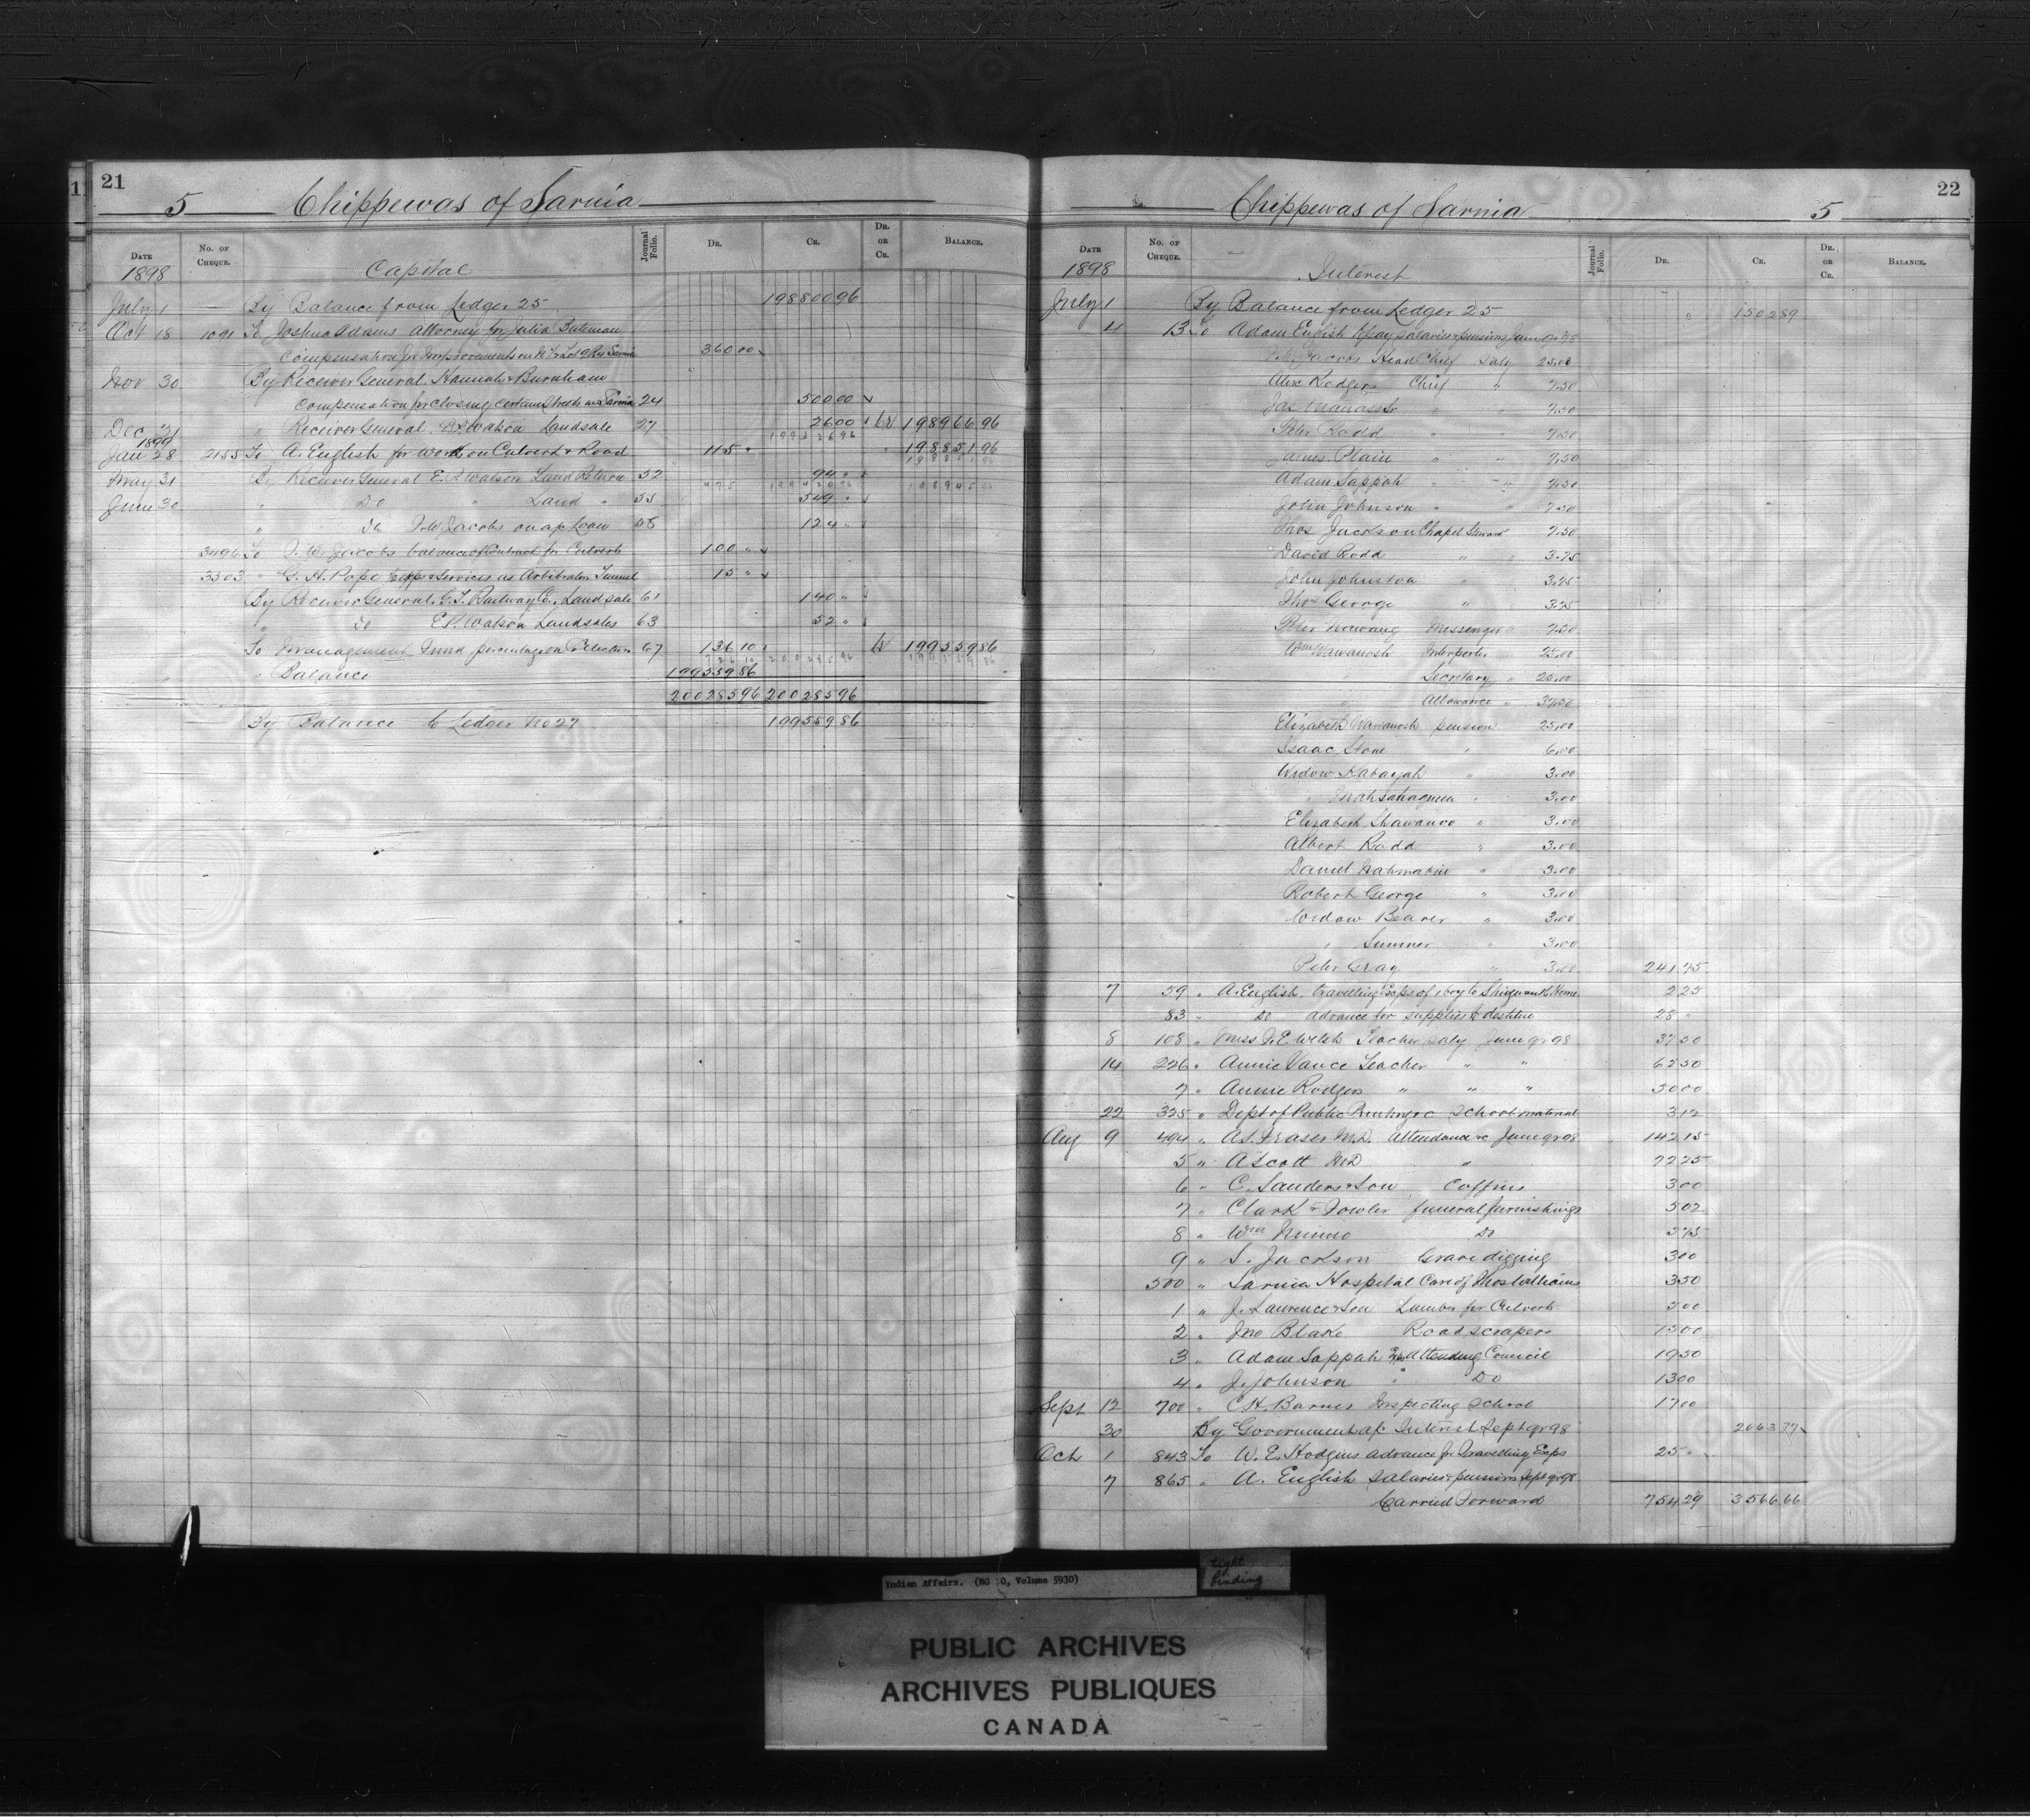 21
5 Chippewas of Sarnia
DATE No. OF CHEQUE. Journal Folio. DR. CR. DR. OR CR. BALANCE.
1898 Capital
July 1 By Balance from Ledger 25 198800 96
Oct 18 1091 To Joshua Adams Attorney for Julia Bateman
Compensation for Improvements on Lot 9 Res Sarnia 360 00
Nov 30 By Receiver General, Hannah & Burnham
Compensation for closing certain Streets in Sarnia 24 500 00
Dec 21 " Receiver General Watson Landsale 27 26 00 Cr 198966 96
1899
Jan 28 2155 To A. English for work on Culvert & Road 115 " " 198851 96
May 31 By Receiver General E. P. Watson Land Return 52 94 "
June 30 " Do " Land " 55 549 "
" Do F. W. Jacobs on a/c Loan 58 124 "
3496 To F. W. Jacobs balance of Contract for Culverts 100 "
3503 " G. H. Pope services as Arbitrator Tunnel 15 "
By Receiver General, G. T. Railway Co., Land sale 61 140 "
" Do E. P. Watson Landsales 63 52 "
To Management Fund percentage on Collections 67 136 10 Cr 199559 86
" Balance 199559 86
200285 96 200285 96
By Balance to Ledger No 27 199559 86
22
Chippewas of Sarnia 5
DATE No. OF CHEQUE. Journal Folio. DR. CR. DR. OR CR. BALANCE.
1898 Interest
July 1 By Balance from Ledger 25 " 1502 89
4 13 To Adam English to pay salaries & pensions June qr 98
Jacobs Head Chief Saly 25.00
Alex Rodgers Chief " 7.50
Jas Manass Sr " " 7.50
Peter Rodd " " 7.50
James Plain " " 7.50
Adam Sappah " " 7.50
John Johnson " " 7.50
Thos Jackson Chapel Steward 7.50
David Rodd " " 3.75
John Johnston " 3.75
Thos George " " 3.75
Peter Nawang Messenger " 7.50
Wm Wawanosh Interpreter " 25.00
" Secretary " 25.00
" Allowance " 37.50
Elizabeth Wawanosh pension 25.00
Isaac Stone " 6.00
Widow Kabayah " 3.00
" " 3.00
Elizabeth Shawanoo " 3.00
Albert Rodd " 3.00
Daniel " 3.00
Robert George " 3.00
Widow Beaver " 3.00
" Sumner " 3.00
Peter Gray " 3.00 241 75
7 59 " A. English travelling Exps of boy to Shingwauk Home 2 25
83 " Do advance for supplies to destitute 28 "
8 108 " Miss F. E. Welsh Teacher saly June qr 98 37 50
14 226 " Annie Vance Teacher " " 62 50
7 " Annie Rodgers " " " 50 00
22 325 " Dept of Public Printing &c School material 3 12
Aug 9 494 " A. S. Fraser M.D. Attendance &c June qr 98 142 15
5 " A Scott M.D " 72 25
6 " C. Sanders & Son Coffins 3 00
7 " Clark & Fowler funeral furnishings 5 02
8 " Wm Nimmo Do 5 75
9 " S. Jackson Grave digging 3 00
500 " Sarnia Hospital Care of Thos Williams 3 50
1 " J. Lawrence & Son Lumber for Culverts 5 00
2 " Jno Blake Road scrapers 15 00
3 " Adam Sappah Exps Attending Council 19 50
4 " J. Johnson " Do 13 00
Sept 12 700 " C. H. Barnes Inspecting School 17 00
30 By Government a/c Interest Sept qr 98 2063 77
Oct 1 843 To W. E. Hodgins advance for Travelling Exps 25 "
7 865 " A. English salaries & pensions Sept qr 98
Carried Forward 754 29 3566 66
Indian Affairs. (RG 10, Volume 5930)
tight binding
PUBLIC ARCHIVES
ARCHIVES PUBLIQUES
CANADA